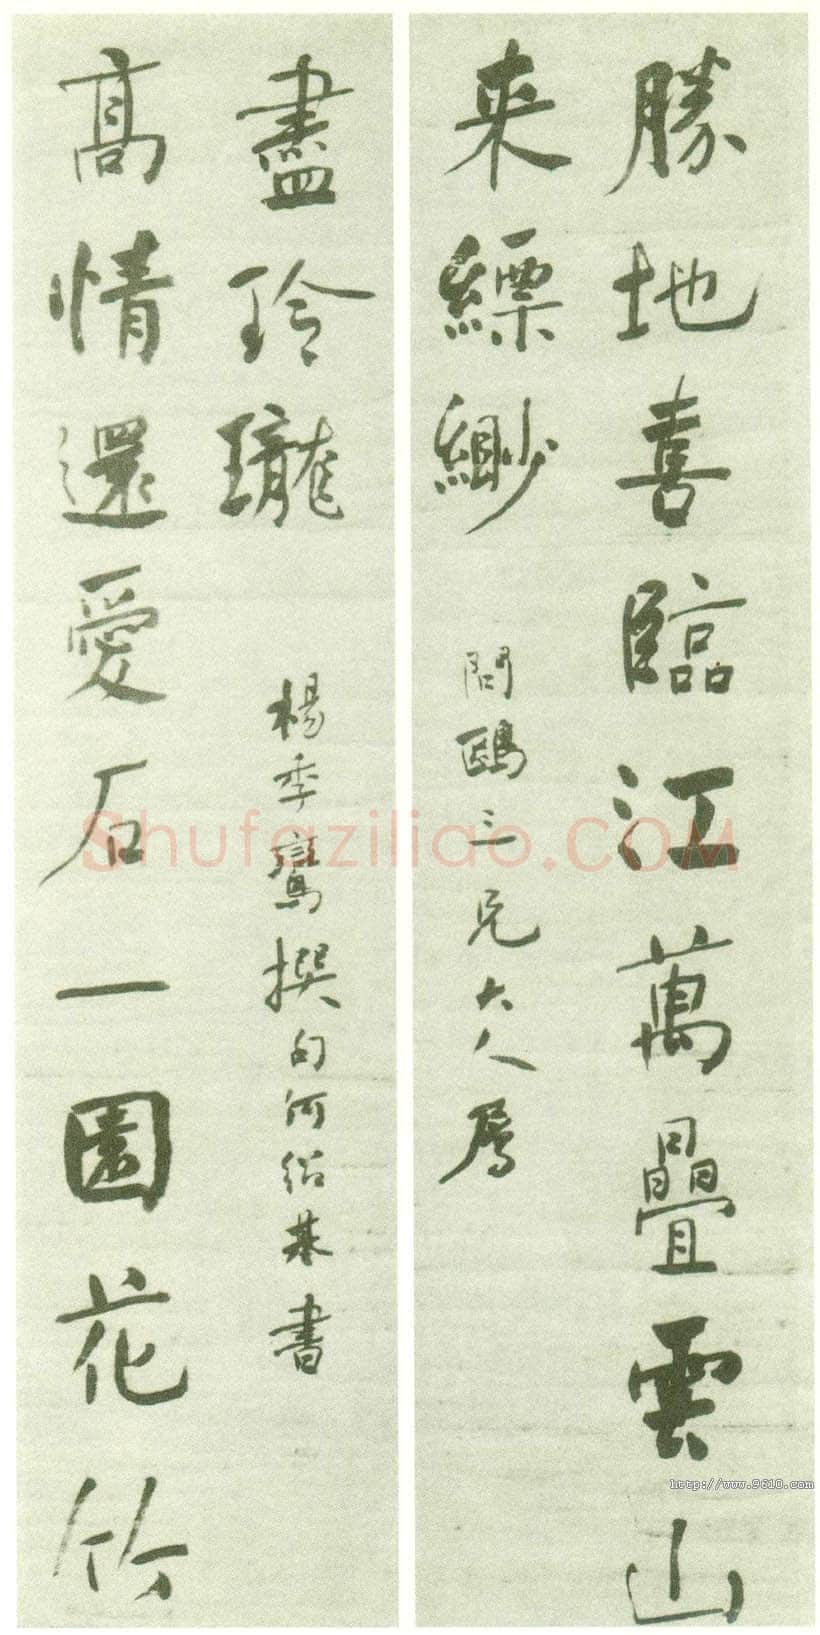 勝地喜臨江萬疊雲山
来縹緲
問鷗三兄大人屬
高情還愛石一園花竹
盡玲瓏
楊季鸞撰句何紹基書
Shufaziliao.COM
http://www.9610.com